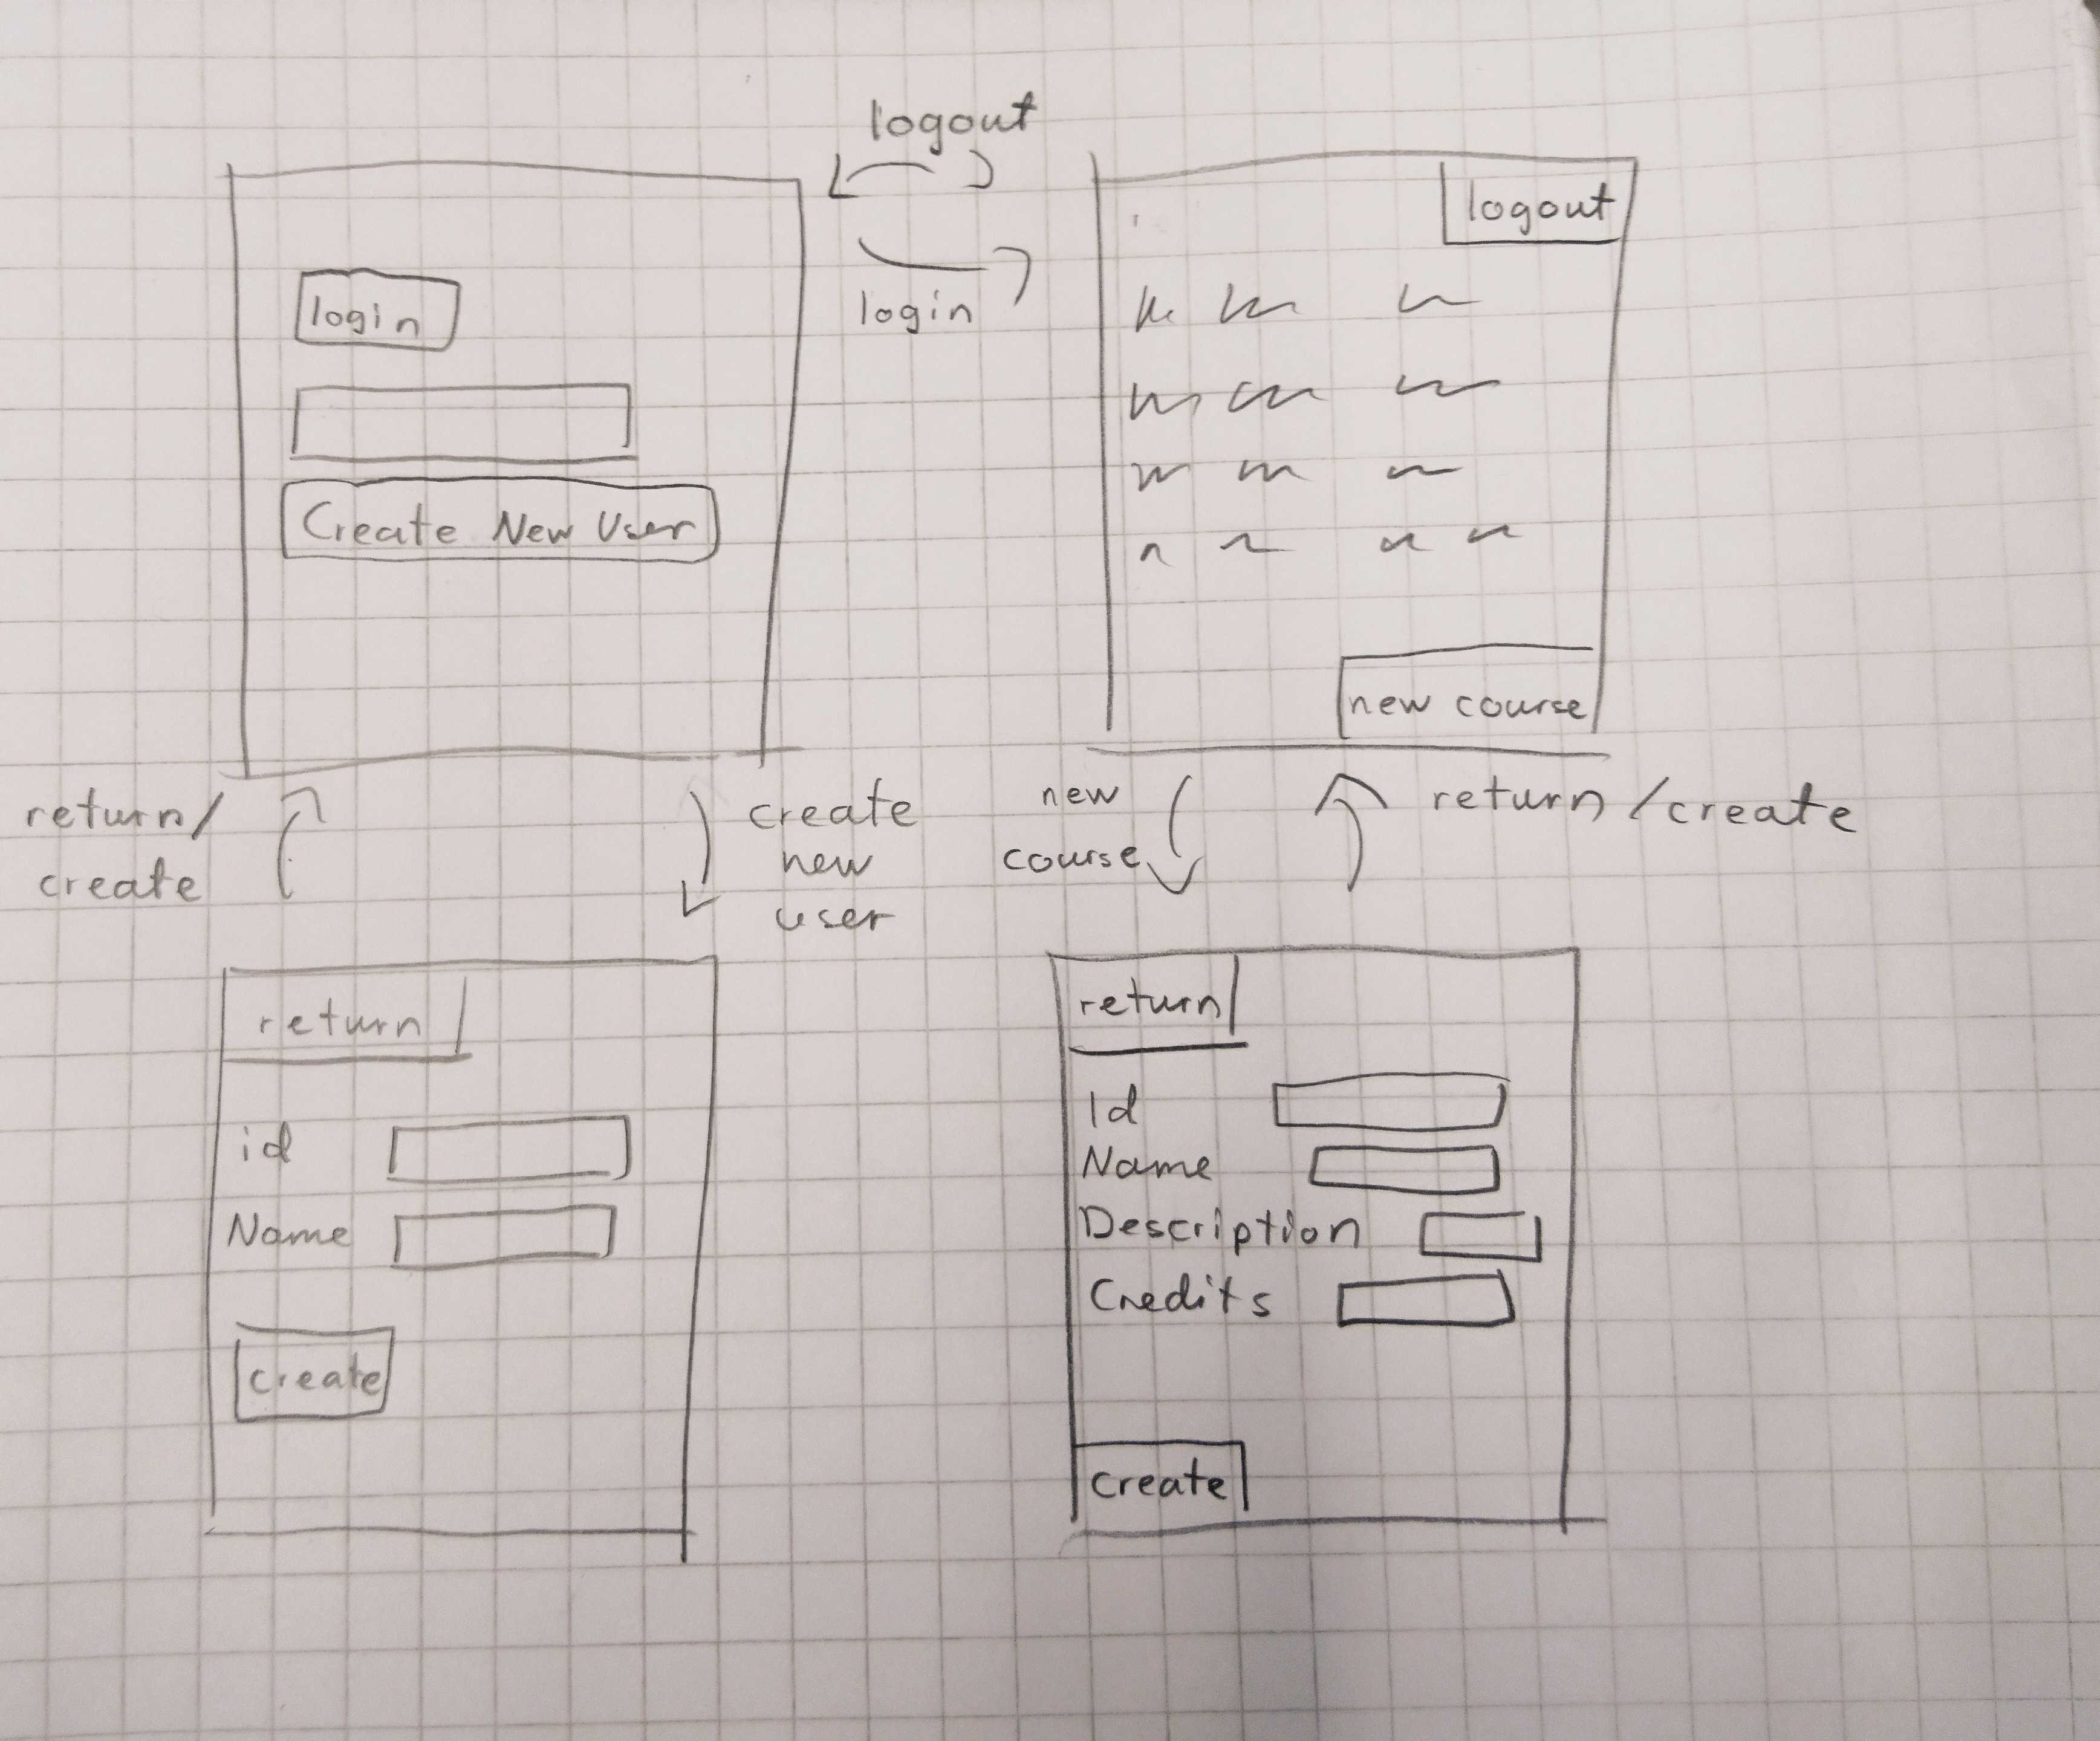 logout
login
login
Create New User
logout
new course
return/
create
create
new
user
new
course
return/create
return
id
Name
create
return
Id
Name
Description
Credits
create